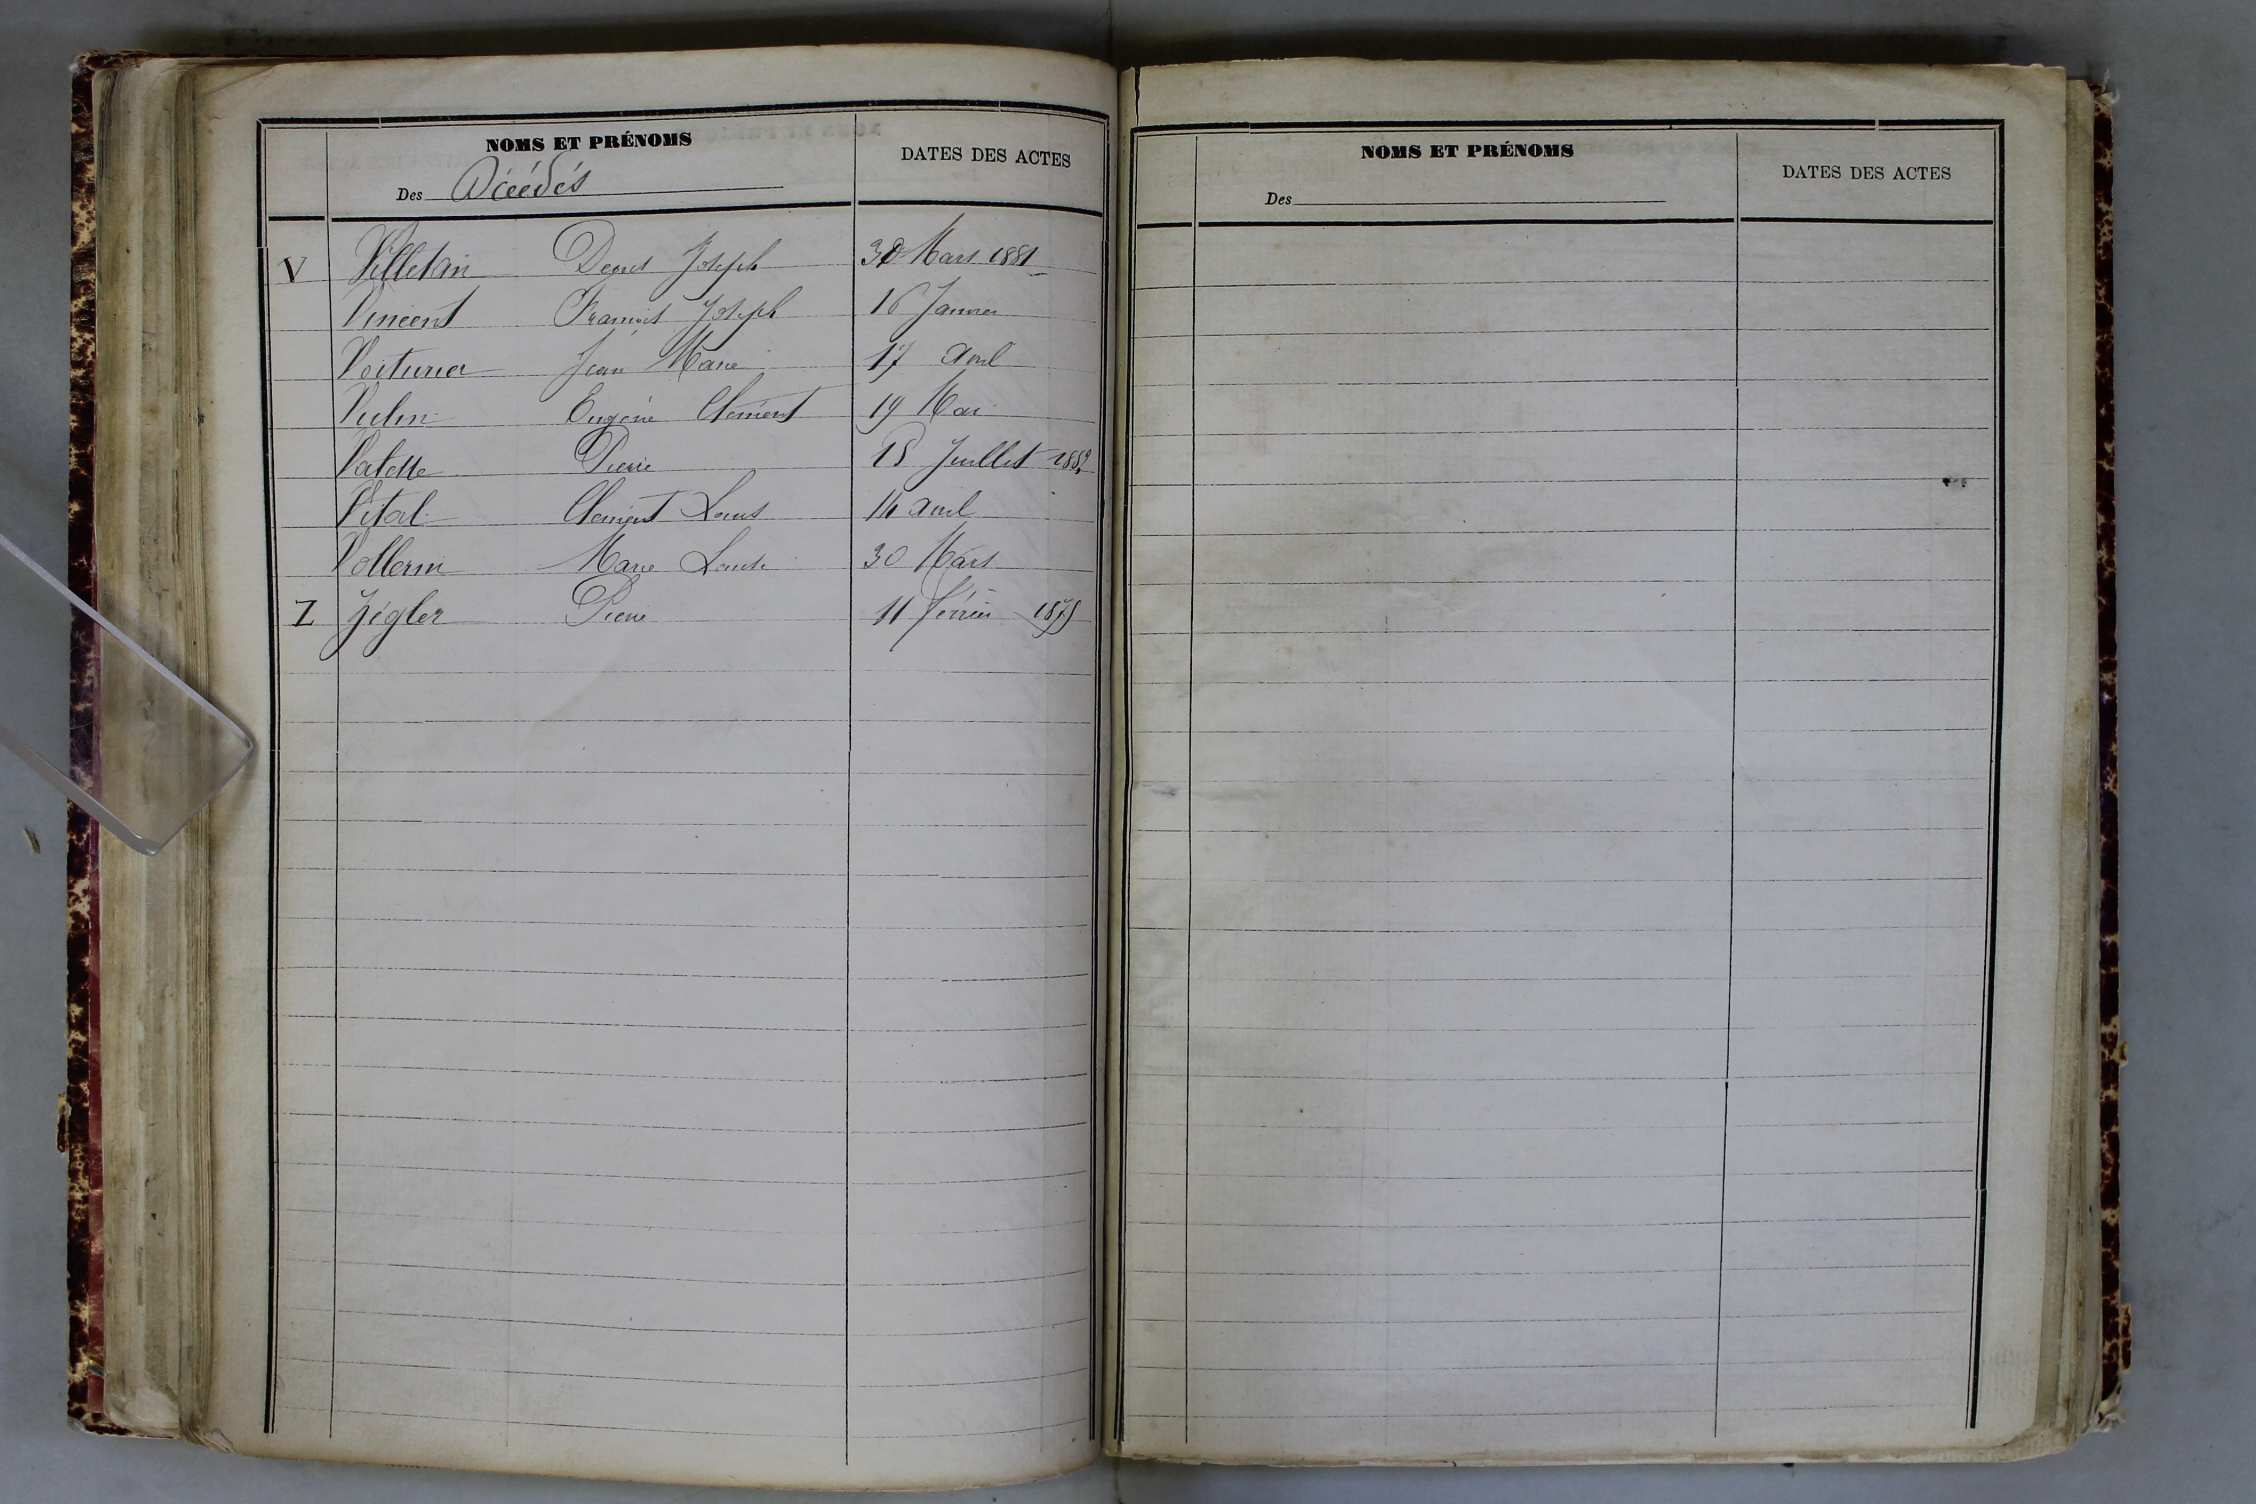 NOMS ET PRÉNOMS
DATES DES ACTES
Des Décédés
V Villetan Denis Joseph 30 Mars 1881
Vincent François Joseph 16 Janvier
Voiturier Jean Marie 17 Avril
Vulin Eugène Clément 19 Mai
Valette Pierre 18 Juillet 1882
Vital Clément Louis 14 Avril
Vollerin Marie Louise 30 Mars
Z Zégler Pierre 11 février 1875
NOMS ET PRÉNOMS
DATES DES ACTES
Des